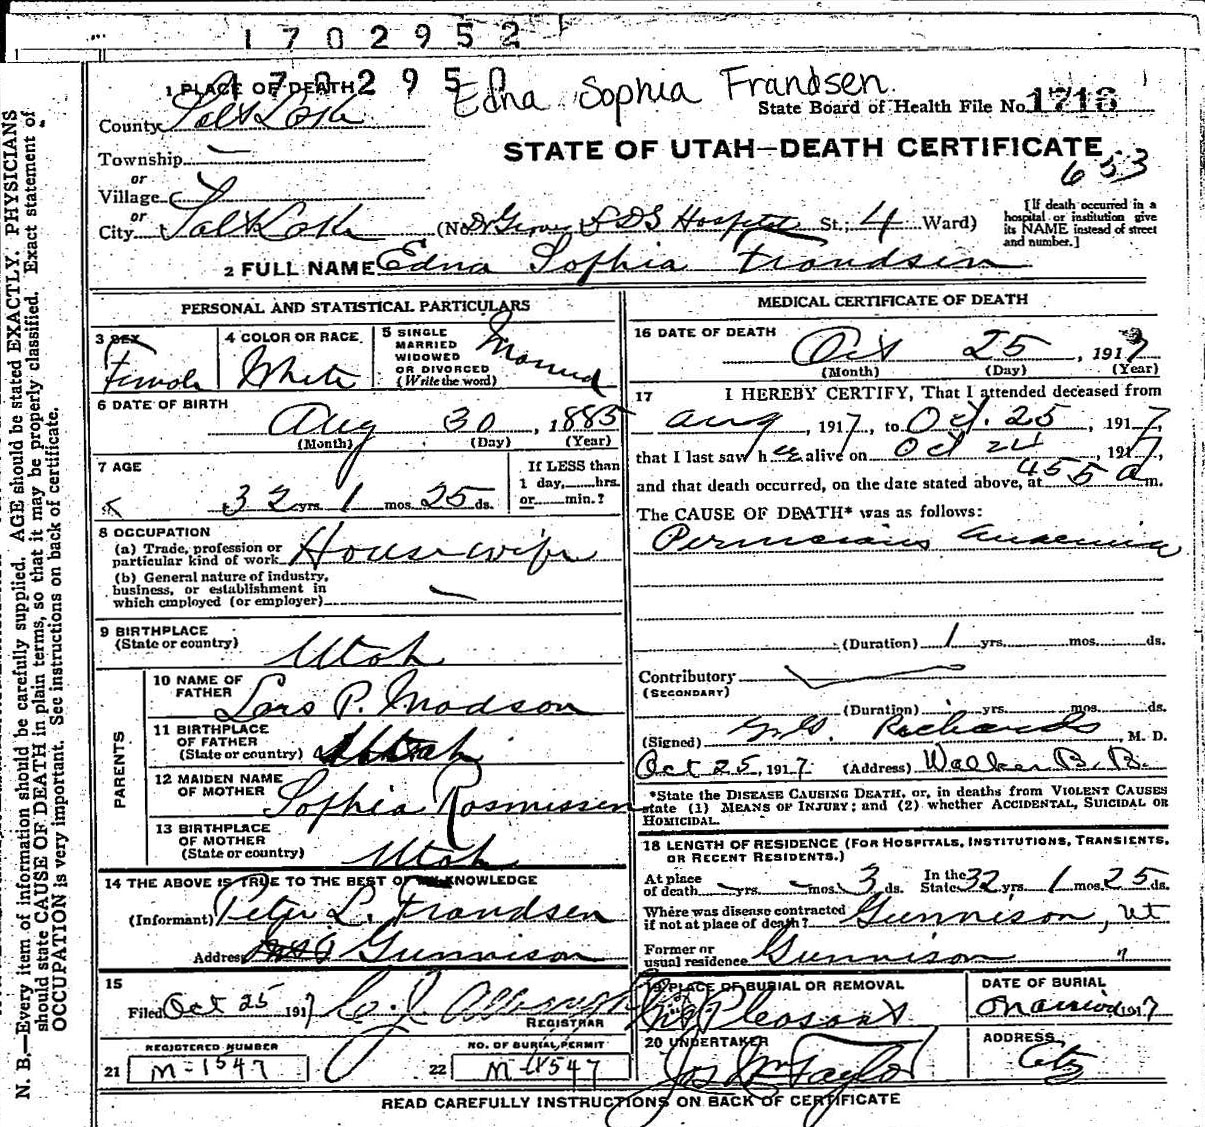 1702952
170295
Edna Sophia Frandsen
1 PLACE OF DEATH
State Board of Health File No. 1716
County Salt Lake
STATE OF UTAH—DEATH CERTIFICATE
653
Township —
or
Village
or
City Salt Lake (No. LDS Hospital St.; 4 Ward)
[If death occurred in a hospital or institution give its NAME instead of street and number.]
2 FULL NAME Edna Sophia Frandsen
PERSONAL AND STATISTICAL PARTICULARS
3 SEX Female
4 COLOR OR RACE White
5 SINGLE MARRIED WIDOWED OR DIVORCED (Write the word) Married
6 DATE OF BIRTH
Aug 30, 1885
(Month) (Day) (Year)
7 AGE
32 yrs. 1 mos. 25 ds.
If LESS than 1 day, hrs. or min.?
8 OCCUPATION
(a) Trade, profession or particular kind of work Housewife
(b) General nature of industry, business, or establishment in which employed (or employer) —
9 BIRTHPLACE
(State or country) Utah
PARENTS
10 NAME OF FATHER Lars P. Madson
11 BIRTHPLACE OF FATHER (State or country) Utah
12 MAIDEN NAME OF MOTHER Sophia Rasmissen
13 BIRTHPLACE OF MOTHER (State or country) Utah
14 THE ABOVE IS TRUE TO THE BEST OF MY KNOWLEDGE
(Informant) Peter L. Frandsen
Address Gunnison
15
Filed Oct 25 1917
REGISTRAR
REGISTERED NUMBER
21 M-1547
NO. OF BURIAL PERMIT
22 M-1547
MEDICAL CERTIFICATE OF DEATH
16 DATE OF DEATH
Oct 25, 1917
(Month) (Day) (Year)
17 I HEREBY CERTIFY, That I attended deceased from
Aug, 1917, to Oct. 25, 1917,
that I last saw her alive on Oct 24, 1917,
and that death occurred, on the date stated above, at 455 a m.
The CAUSE OF DEATH* was as follows:
Pernicious Anaemia
(Duration) 1 yrs. mos. ds.
Contributory
(SECONDARY)
(Duration) yrs. mos. ds.
(Signed) G. G. Richards, M. D.
Oct 25, 1917 (Address) Walker B. B.
*State the DISEASE CAUSING DEATH, or, in deaths from VIOLENT CAUSES
state (1) MEANS OF INJURY; and (2) whether ACCIDENTAL, SUICIDAL OR
HOMICIDAL.
18 LENGTH OF RESIDENCE (FOR HOSPITALS, INSTITUTIONS, TRANSIENTS,
OR RECENT RESIDENTS.)
At place of death — yrs. — mos. 3 ds. In the State 32 yrs. 1 mos. 25 ds.
Where was disease contracted if not at place of death? Gunnison, Ut
Former or usual residence Gunnison "
19 PLACE OF BURIAL OR REMOVAL
Mt Pleasant
DATE OF BURIAL
1917
20 UNDERTAKER
Jos Wm Taylor
ADDRESS
City
READ CAREFULLY INSTRUCTIONS ON BACK OF CERTIFICATE
N. B.—Every item of information should be carefully supplied. AGE should be stated EXACTLY. PHYSICIANS
should state CAUSE OF DEATH in plain terms, so that it may be properly classified. Exact statement of
OCCUPATION is very important. See instructions on back of certificate.